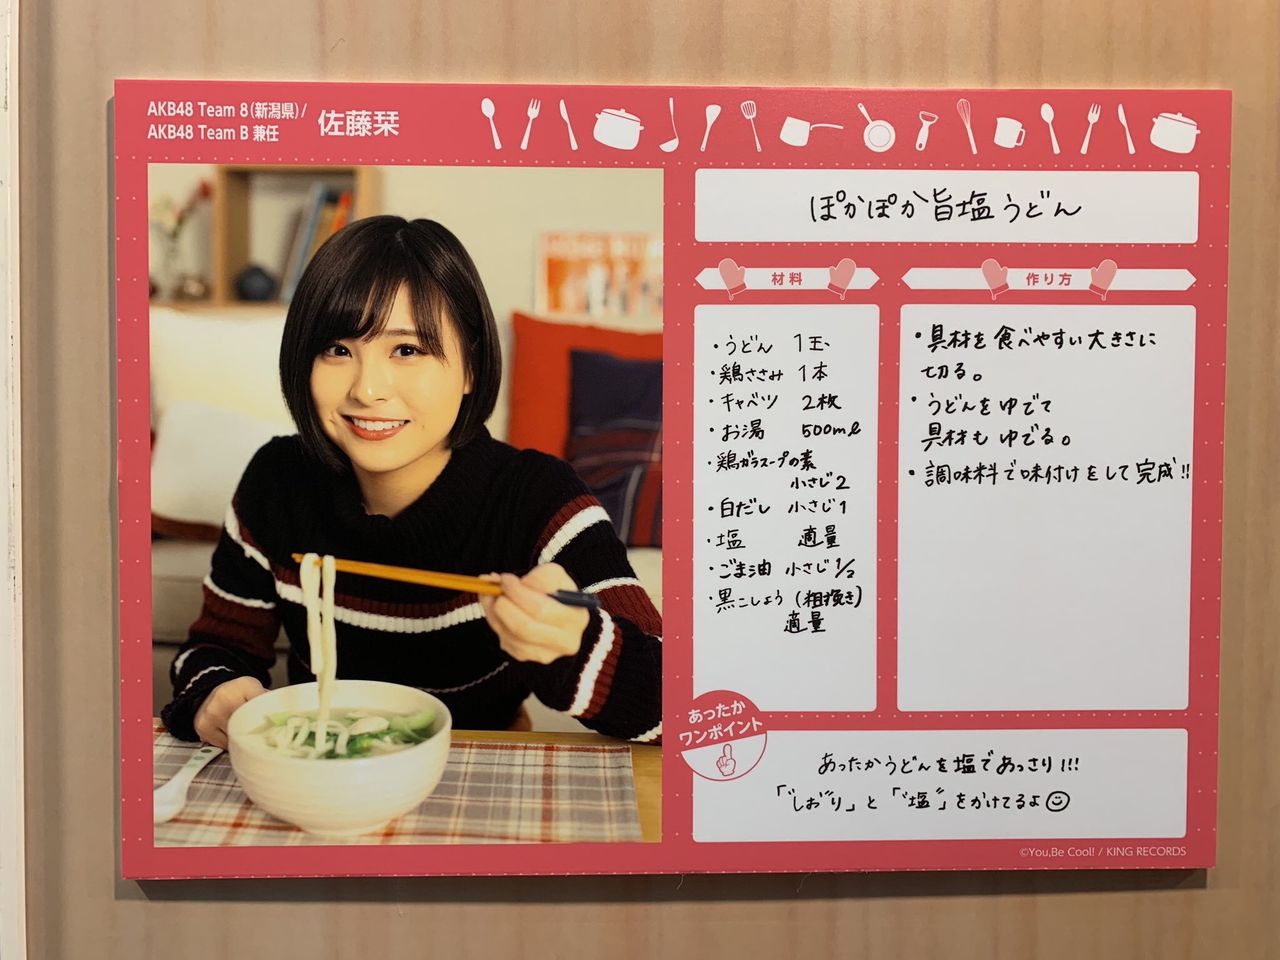 AKB48 Team 8(新潟県)/
AKB48 Team B 兼任
佐藤栞
ぽかぽか旨塩うどん
材料
・うどん 1玉
・鶏ささみ 1本
・キャベツ 2枚
・お湯 500ml
・鶏ガラスープの素
小さじ2
・白だし 小さじ1
・塩 適量
・ごま油 小さじ1/2
・黒こしょう(粗挽き)
適量
作り方
・具材を食べやすい大きさに
切る。
・うどんをゆでて
具材もゆでる。
・調味料で味付けをして完成!!
あったか
ワンポイント
あったかうどんを塩であっさり!!!
「"しお"り」と「"塩"」をかけてるよ☺
©You,Be Cool! / KING RECORDS